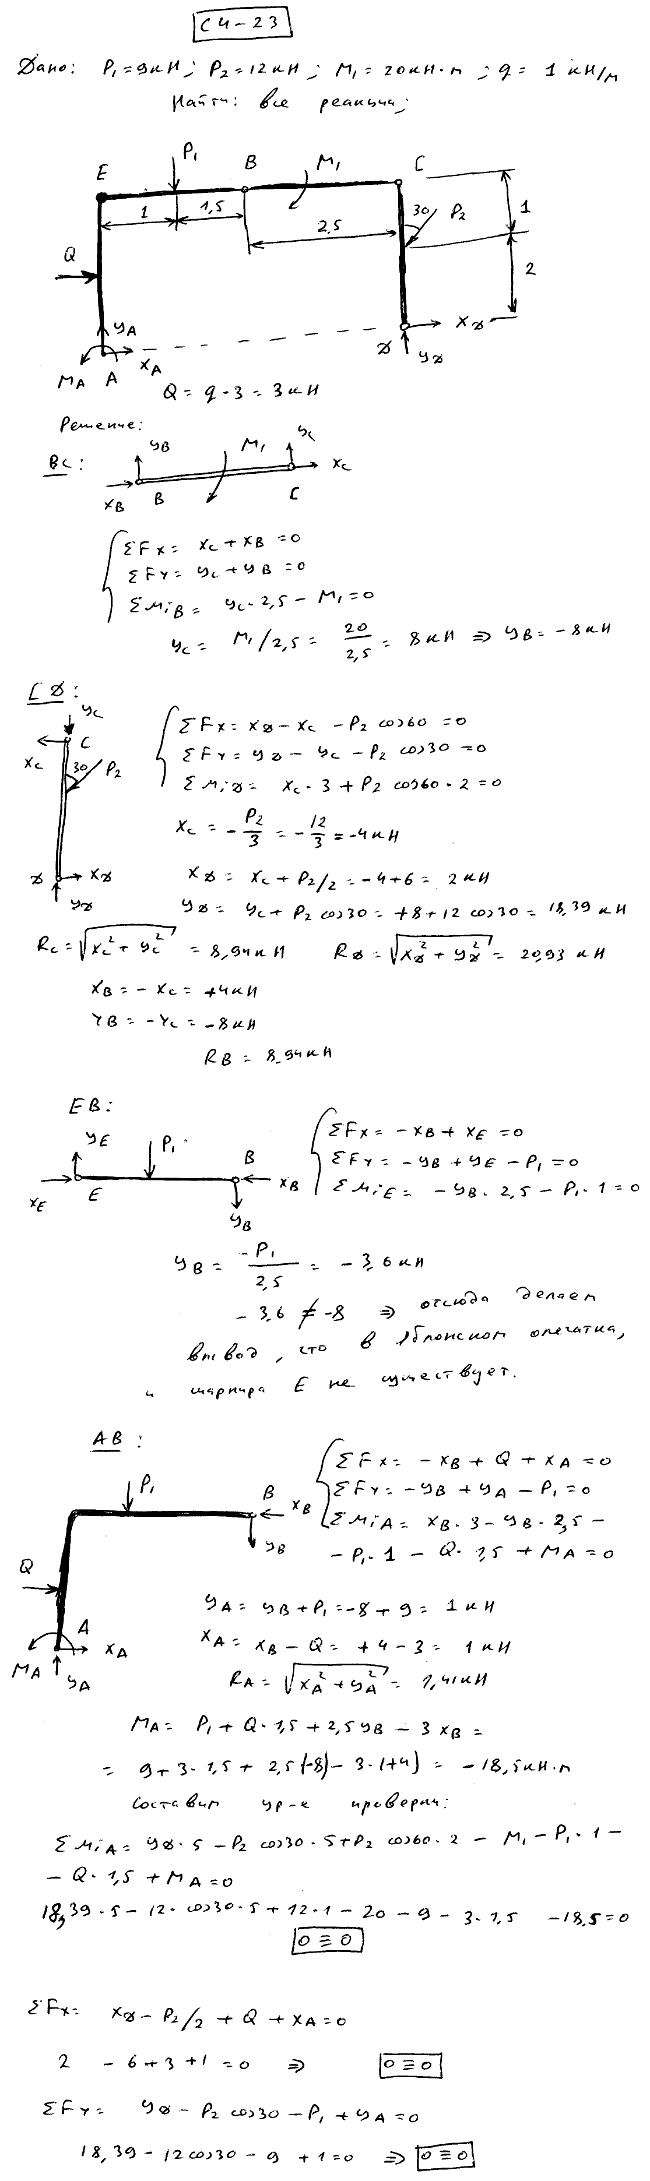 С4-23
Дано: P₁=9кН; P₂=12кН; M₁=20кН·м; q= 1 кН/м
Найти: все реакции;
E
P₁
B
M₁
C
1
1,5
2,5
30
P₂
1
2
Q
yA
MA A
xA
D
xD
yD
Q = q·3 = 3кН
Решение:
BC:
yB
M₁
yC
xC
xB
B
C
ΣFx = xC + xB = 0
ΣFy = yC + yB = 0
ΣMiB = yC·2,5 - M₁ = 0
yC = M₁/2,5 = 20/2,5 = 8кН ⇒ yB = -8кН
CD:
yC
xC
C
30
P₂
D
xD
yD
ΣFx = xD - xC - P₂ cos60 = 0
ΣFy = yD - yC - P₂ cos30 = 0
ΣMiD = xC·3 + P₂ cos60·2 = 0
xC = -P₂/3 = -12/3 = -4кН
xD = xC + P₂/2 = -4+6 = 2кН
yD = yC + P₂ cos30 = +8+12 cos30 = 18,39 кН
RC = √(xC² + yC²) = 8,94кН RD = √(xD² + yD²) = 20,93 кН
xB = -xC = +4кН
YB = -YC = -8кН
RB = 8,94кН
EB:
yE
P₁
B
xB
xE
E
yB
ΣFx = -xB + xE = 0
ΣFy = -yB + yE - P₁ = 0
ΣMiE = -yB·2,5 - P₁·1 = 0
yB = -P₁/2,5 = -3,6кН
-3,6 ≠ -8 ⇒ отсюда делаем
вывод, что в Яблонском опечатка,
и шарнира E не существует.
AB:
P₁
B
xB
yB
Q
A
xA
MA
yA
ΣFx = -xB + Q + xA = 0
ΣFy = -yB + yA - P₁ = 0
ΣMiA = xB·3 - yB·2,5 -
- P₁·1 - Q·1,5 + MA = 0
yA = yB + P₁ = -8+9 = 1кН
xA = xB - Q = +4-3 = 1кН
RA = √(xA² + yA²) = 1,41кН
MA = P₁ + Q·1,5 + 2,5yB - 3xB =
= 9+3·1,5 + 2,5(-8) - 3·(+4) = -18,5кН·м
Составим ур-е проверки:
ΣMiA = yD·5 - P₂ cos30·5 + P₂ cos60·2 - M₁ - P₁·1 -
- Q·1,5 + MA = 0
18,39·5 - 12·cos30·5 + 12·1 - 20 - 9 - 3·1,5 -18,5=0
0 ≡ 0
ΣFx = xD - P₂/2 + Q + xA = 0
2 - 6 + 3 + 1 = 0 ⇒ 0 ≡ 0
ΣFy = yD - P₂ cos30 - P₁ + yA = 0
18,39 - 12cos30 - 9 + 1 = 0 ⇒ 0 ≡ 0